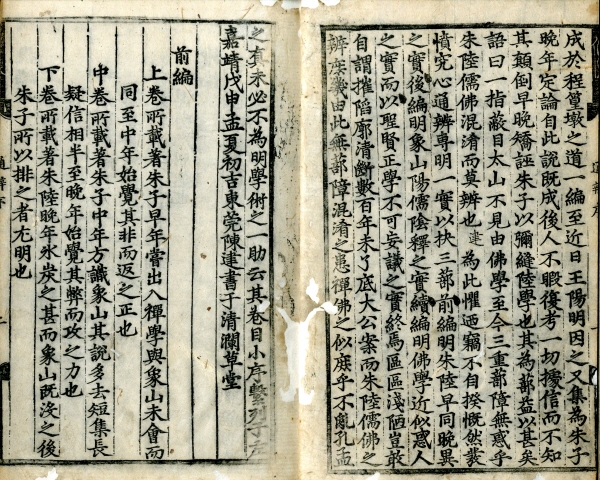 成於程篁墩之道一編至近日王陽明因之又集為朱子
晚年定論自此說既成後人不暇復考一切據信而不知
其顛倒早晚矯誣朱子以彌縫陸學也其為蔀益以甚矣
語曰一指蔽目太山不見由佛學至今三重蔀障無惑乎
朱陸儒佛混淆而莫辨也建為此懼迺竊不自揆慨然發
憤究心通辨專明一實以抉三蔀前編明朱陸早同晚異
之實後編明象山陽儒陰釋之實續編明佛學近似惑人
之實而以聖賢正學不可妄議之實終焉區區淺陋豈敢
自謂摧陷廓清斷數百年未了底大公案而朱陸儒佛之
辨庶幾由此無蔀障混淆之患禪佛之似庶乎不亂孔孟
之真未必不為明學術之一助云其卷目小序繫列于左
嘉靖戊申孟夏初吉東莞陳建書于清瀾草堂
前編
上卷所載著朱子早年嘗出入禪學與象山未會而
同至中年始覺其非而返之正也
中卷所載著朱子中年方識象山其說多去短集長
疑信相半至晚年始覺其弊而攻之力也
下卷所載著朱陸晚年氷炭之甚而象山既沒之後
朱子所以排之者尢明也
通辨序